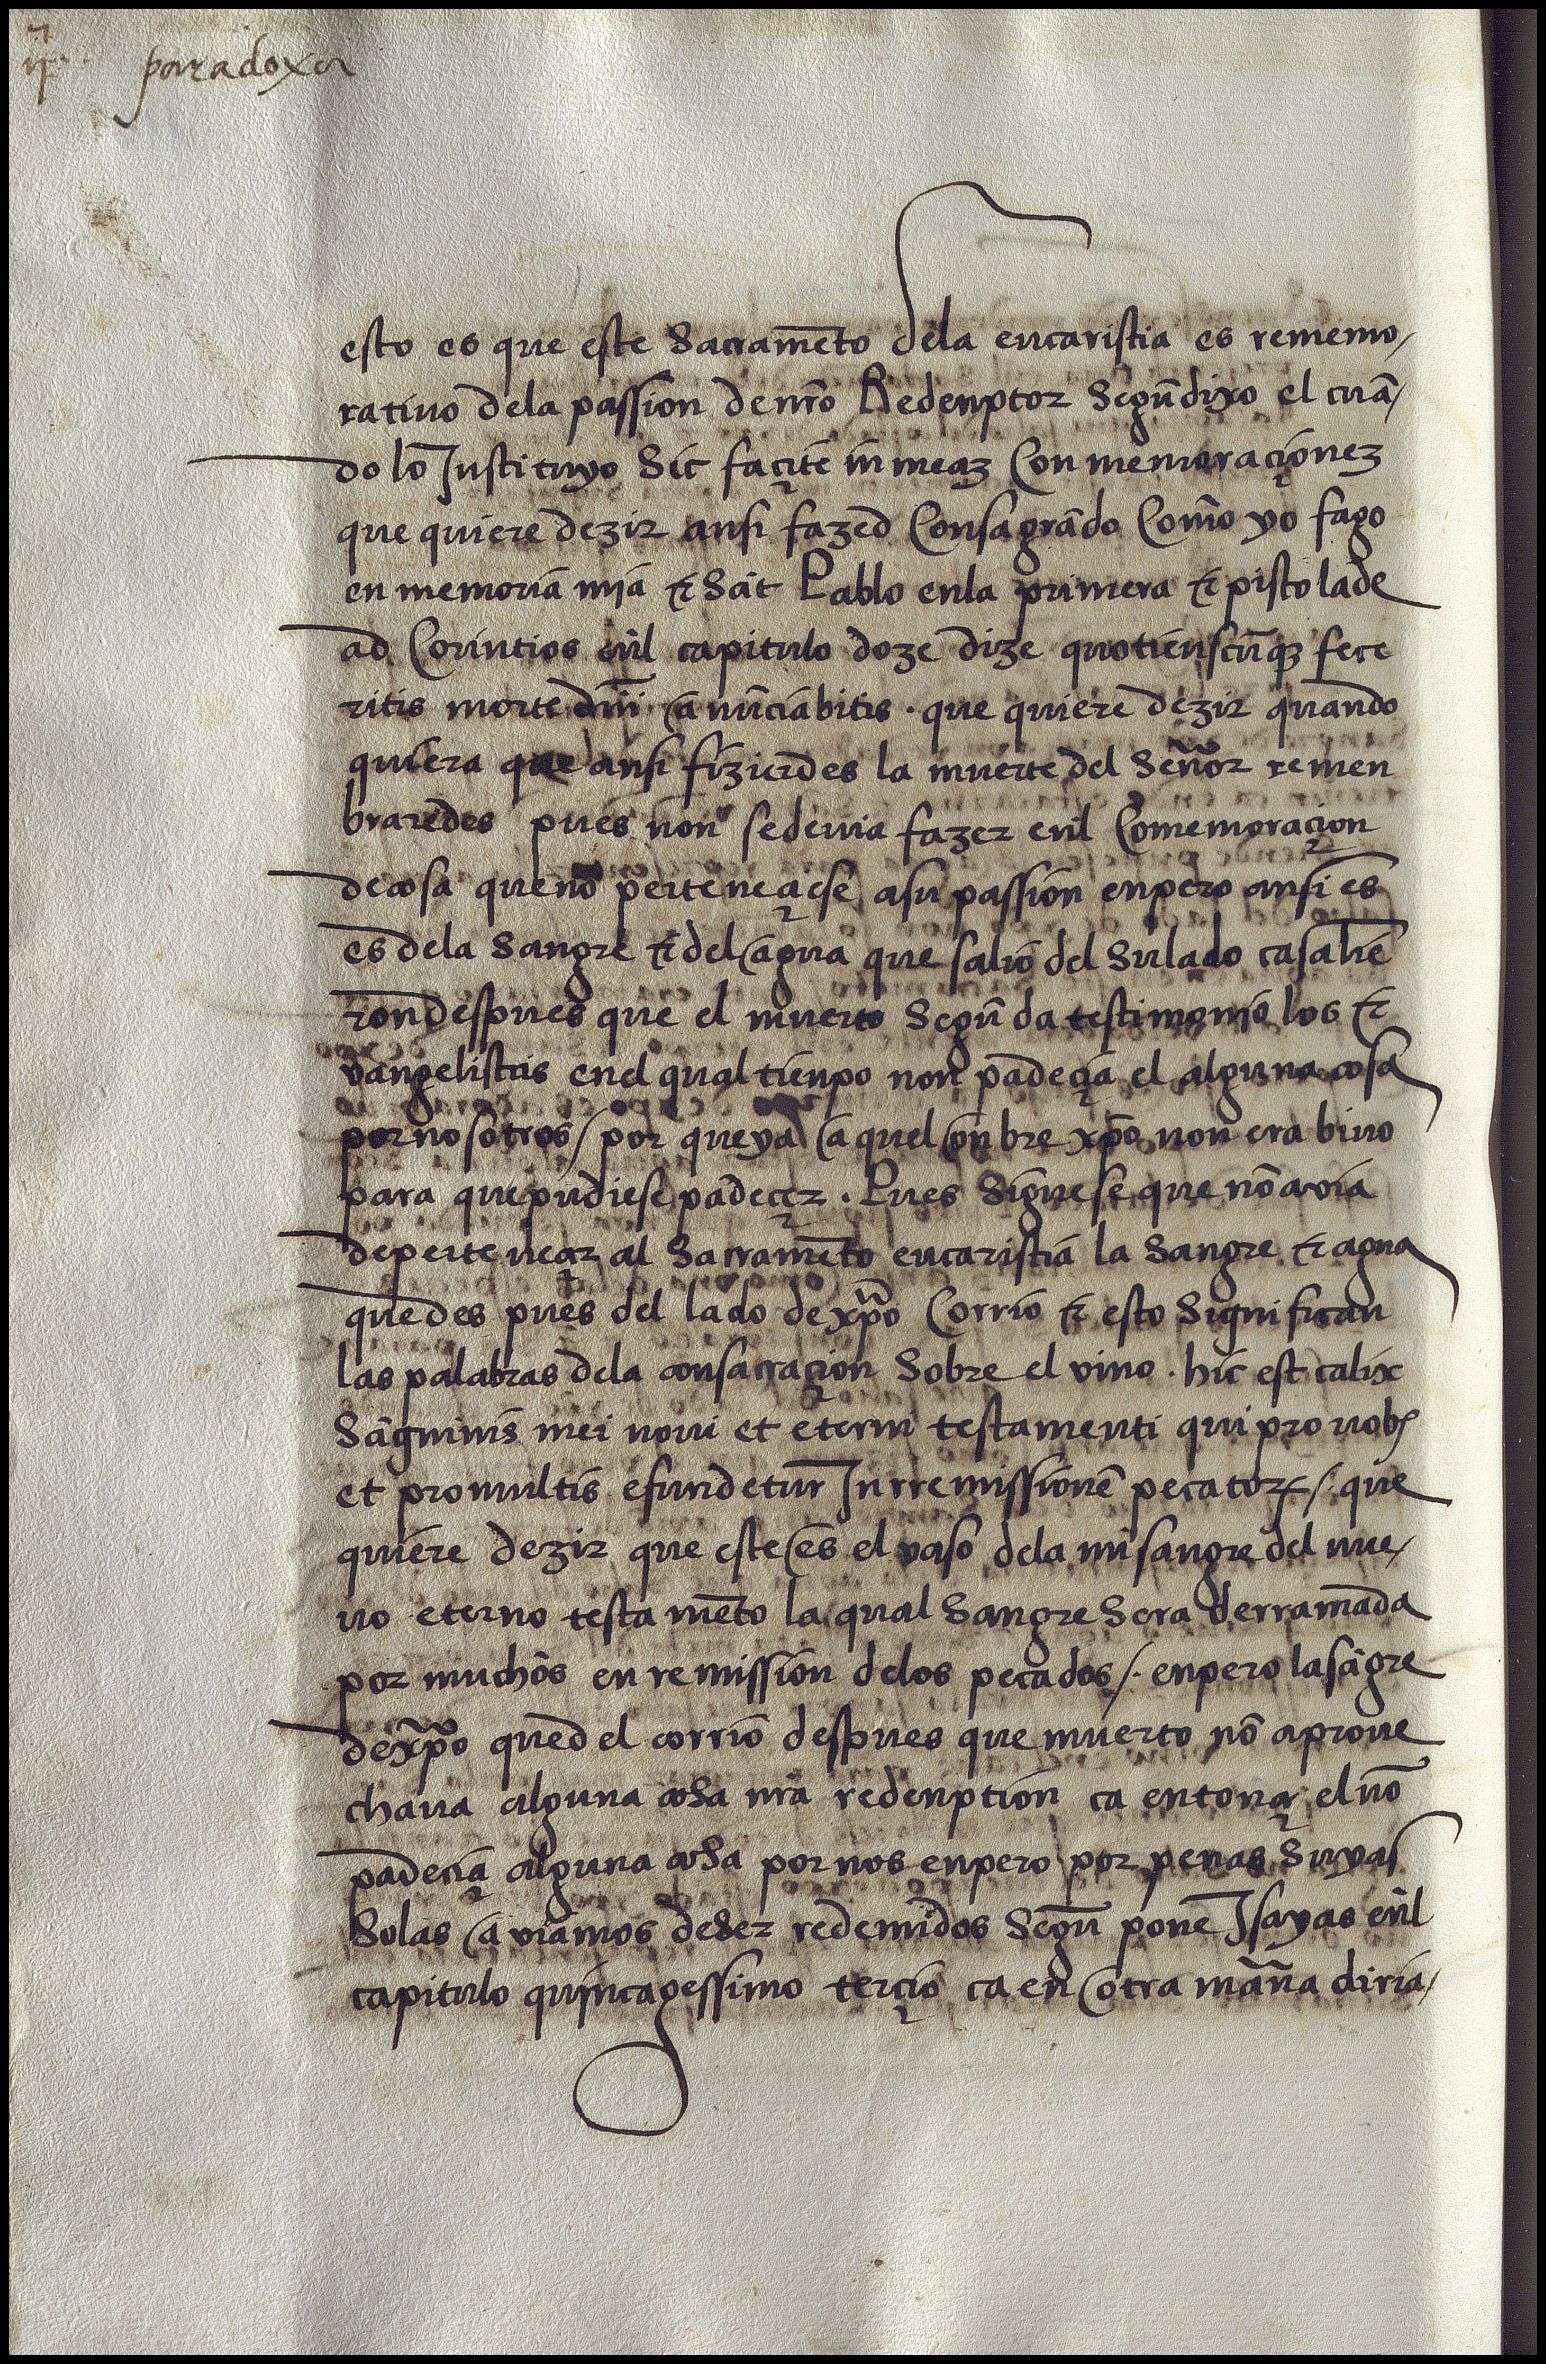 paradoxa
esto es que este Sacramẽto dela eucaristia es rememo/
ratiuo dela passion de nr̃o Redenptor Segũd dixo el cuã/
do lo Instituyo Sic façite in meaȝ Conmemoraçioneȝ
que quiere dezir ansi fazed Consagrãdo Como yo fago
en memoria mia ⁊ Sãt Pablo enla primera epistola de
ad Corintios eñl capitulo doze dize quotienscũqȝ fece
ritis morte dñi anũciabitis . que quiere dezir quando
quiera que ansi fizierdes la muerte del Señor remen
braredes pues non se deuia fazer eñl Comemoraçion
de cosa que nõ perteneçiese a su passion enpero ansi es
es dela Sangre ⁊ del agua que salio del Su lado ca salie
ron despues que el muerto Segũ da testimonio los e
vangelistas en el qual tienpo non padeçia el alguna cosa
por nosotros / por que ya aquel onbre xp̃o non era biuo
para que pudiese padeçer . Pues Siguese que nõ avia
de perteneçer al Sacramẽto eucaristia la Sangre ⁊ agua
que despues del lado de xp̃o Corrio ⁊ esto Significan
las palabras dela consacraçion Sobre el vino . hic est calix
Sãguinis mei noui et eterni testamenti qui pro uobis
et pro multis efundetur In rremissionẽ pecatorꝝ /. que
quiere dezir que este es el vaso dela mi sangre del nue/
uo eterno testamẽto la qual Sangre Sera derramada
por muchos en remission delos pecados /. enpero la sãgre
de xp̃o que del corrio despues que muerto nõ aproue
chaua alguna cosa nr̃a redenption ca entonçe el nõ
padecia alguna cosa por nos enpero por penas Suyas
Solas aviamos de Ser redemidos Segũ pone Isayas eñl
capitulo quincagessimo terçio ca en otra mañа diria/